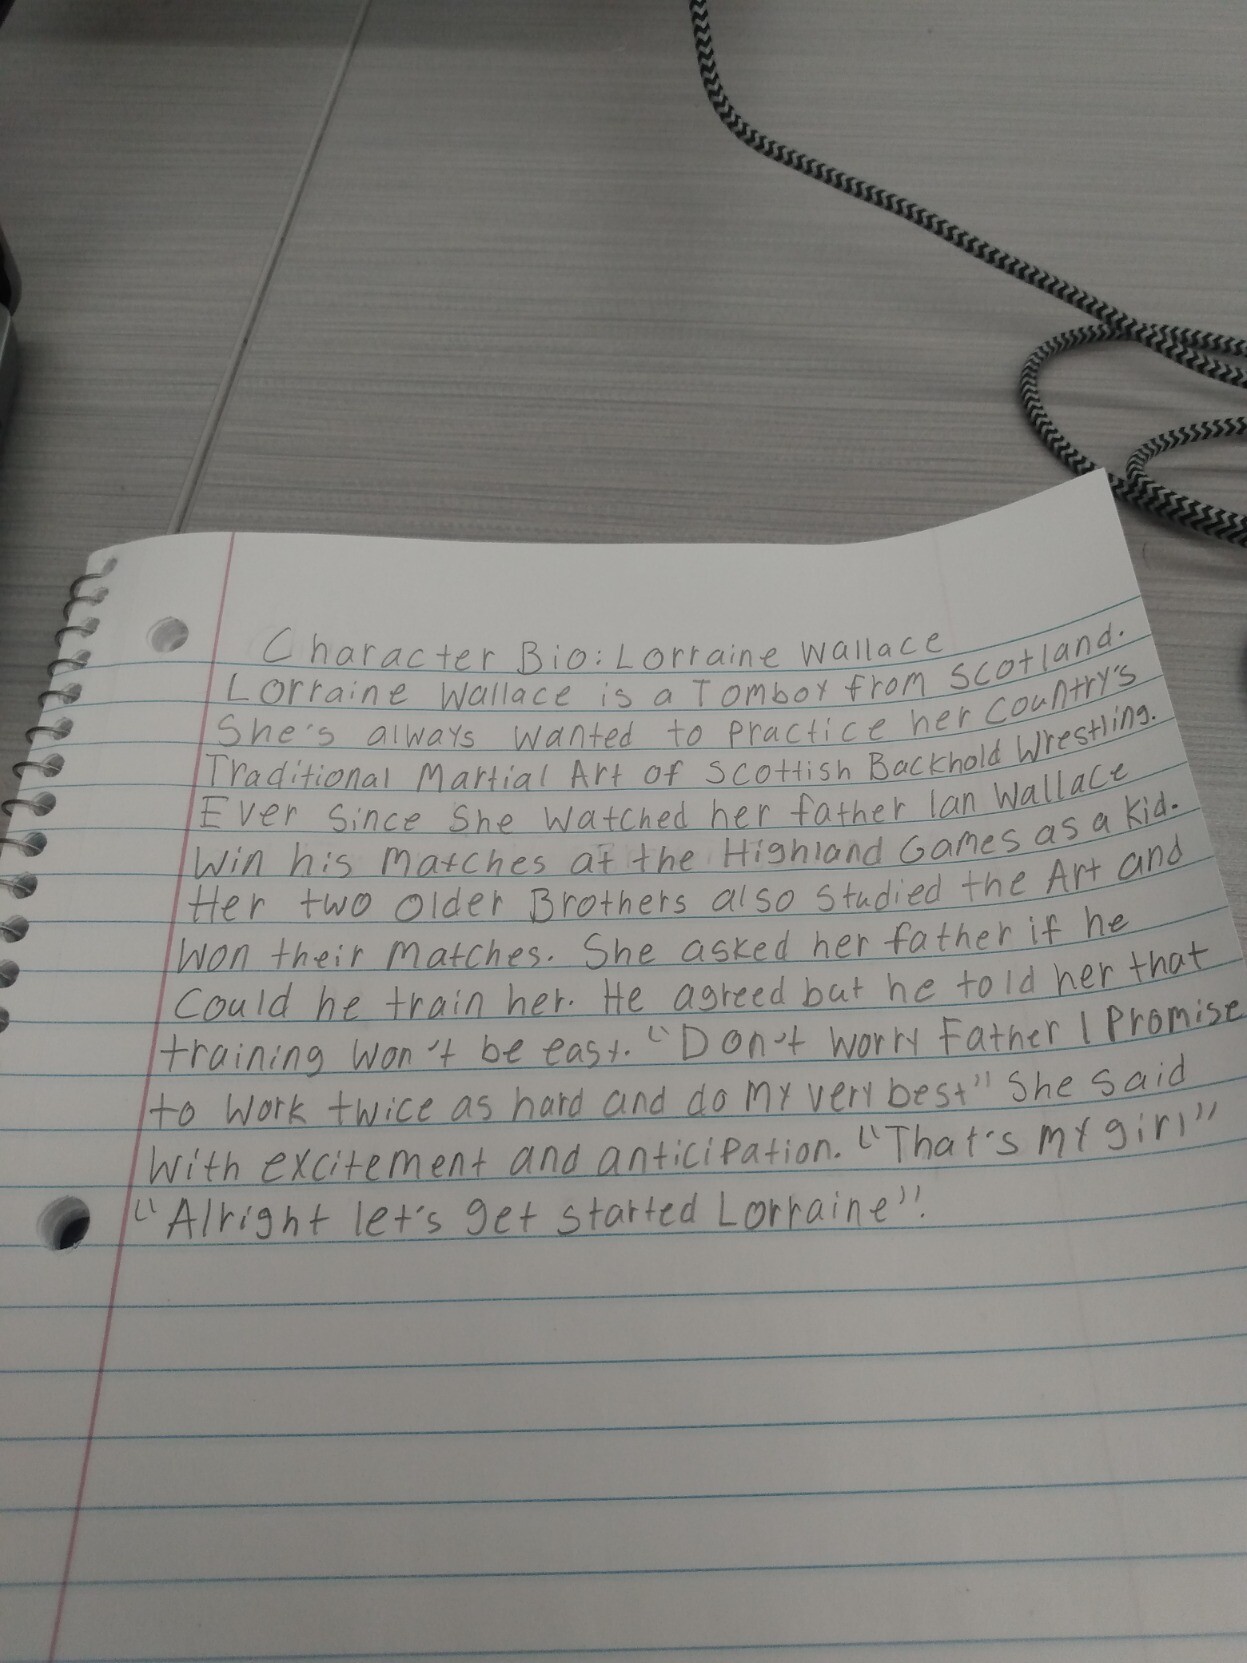 Character Bio: Lorraine Wallace
Lorraine Wallace is a Tomboy from Scotland.
She's always wanted to practice her country's
Traditional Martial Art of Scottish Backhold Wrestling.
Ever since she watched her father Ian Wallace
win his matches at the Highland Games as a kid.
Her two older Brothers also studied the Art and
won their matches. She asked her father if he
could he train her. He agreed but he told her that
training won't be easy. "Don't worry Father I Promise
to work twice as hard and do my very best" She said
with excitement and anticipation. "That's my girl"
"Alright let's get started Lorraine"!